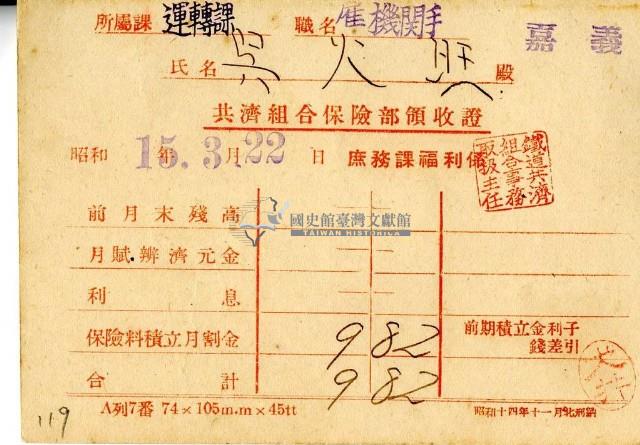 所屬課 運轉課 職名 雇機関手 嘉義
氏名 吳火 殿
共濟組合保險部領收證
昭和 15年 3月 22日 庶務課福利係
鐵道共濟
組合事務
取扱主任
國史館臺灣文獻館
TAIWAN HISTORICA
前月末殘高
月賦辨濟元金
利息
保險料積立月割金 9 82
前期積立金利子
錢差引
合計 9 82
A列7番 74×105m.m×45tt
昭和十四年十一月
119